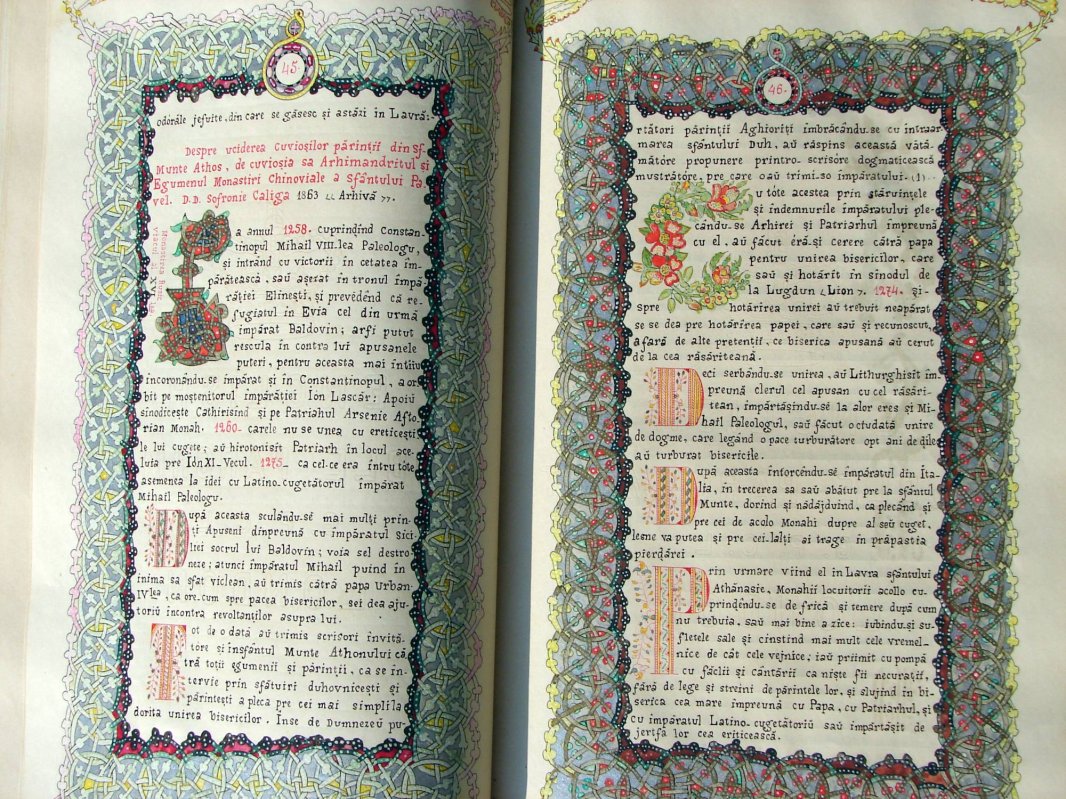 45.
odórăle jefuite, din care se găsesc și astăzi in Lavră:
Despre uciderea Cuvioșilor părinții din sf.
Munte Athos, de cuvioșia sa Arhimandritul și
Egumenul Monastiri Chinoviale a Sfântului Pa-
vel. D.D. Sofronie Caliga 1863 „ Arhivă ”.
La annul 1258. cuprindind Constan-
tinopul Mihail VIII.lea Paleologu,
și intrând cu victorii in cetatea im-
părătească, saŭ așezat in tronul împă
răției Elinești, și prevedénd că re-
fugiatul in Evia cel din urmă
împărat Baldovin; arfi putut
rescula in contra lui apusanele
puteri, pentru aceasta mai întîiu
incoronându.se împărat și in Constantinopul, a or-
bit pe moștenitorul împărăției Ión Lascăr: Apoiu
sinodicește Cathirisind și pe Patriahul Arsenie Afto-
rian Monah. 1260. carele nu se unea cu ereticești-
le lui cugete; aŭ hirotonisit Patriarh în locul ace-
luia pre Ión XI-Vecul. 1275_ ca cel.ce era întru tóte
asemenea la idei cu Latino.cugetătorul împărat
Mihail Paleologu.
După aceasta sculându.sĕ mai mulți prin-
ți Apuseni dinpreună cu împăratul Sici-
liei socrul lui Baldovin; voia sel destro
neze; atunci împăratul Mihail puind în
inima sa sfat viclean, aŭ trimis cătră papa Urban
IV lea, ca ore.cum spre pacea bisericilor, sei dea aju-
toriŭ incontra revoltanților asupra lui.
Tot de o dată aŭ trimis scrisori invită-
tóre și insfântul Munte Athonului că-
tră toții egumenii și părinții, ca se in-
tervie prin sfătuiri duhovnicești și
părintești a pleca pre cei mai simpli la
dorita unirea bisericilor. Inse de Dumnezeŭ pu-
46.
rtători părinții Aghioriți îmbrăcându.se cu intrar
marea sfântului Duh, aŭ răspins această vătă-
mătóre propunere printro-scrisóre dogmaticească
mustrătóre, pre care oaŭ trimi-so împăratului. (1)
Cu tóte acestea prin stăruințele
și indemnurile împăratului ple-
cându-se Arhirei și Patriarhul împreună
cu el, aŭ făcut éră-și cerere cătră papa
pentru unirea bisericilor, care
saŭ și hotărît in sinodul de
la Lugdun „ Lion ”. 1274. Și-
spre hotărîrea unirei aŭ trebuit neapărat
se se dea pre hotărîrea papei, care saŭ și recunoscut,
afară de alte pretenții, ce biserica apusană aŭ cerut
de la cea răsăriteană.
Deci serbându.se unirea, aŭ Lithurghisit îm-
preună clerul cel apusan cu cel răsări-
tean, împărtășindu-sĕ la alor eres și Mi-
hail Paleologul, saŭ făcut o ciudată unire
de dogme, care legând o pace turburătore opt ani de dile
aŭ turburat bisericile.
După aceasta intorcéndu-sĕ împăratul din Ita-
lia, in trecerea sa saŭ abătut pre la sfântul
Munte, dorind și nădăjduind, ca plecând și
pre cei de acolo Monahi dupre al seŭ cuget,
leme va putea și pre cei.lalți ai trage in prăpastia
pierdărei.
Prin urmare viind el in Lavra sfântului
Athănasie, Monahii locuitorii acollo cu-
prindéndu-se de frică și temere după cum
nu trebuia, saŭ mai bine a zice: iubindu-și su-
fletele sale și cinstind mai mult cele vremel-
nice de cât cele vejnice; iaŭ priimit cu pompă
cu făclii și cântării ca niște fii necurații,
fără de lege și streini de părintele lor, și slujind in bi-
serica cea mare împreună cu Papa, cu Patriarhul, și
cu împăratul Latino.cugetătoriŭ saŭ împărtășit de
jertfa lor cea eriticească.